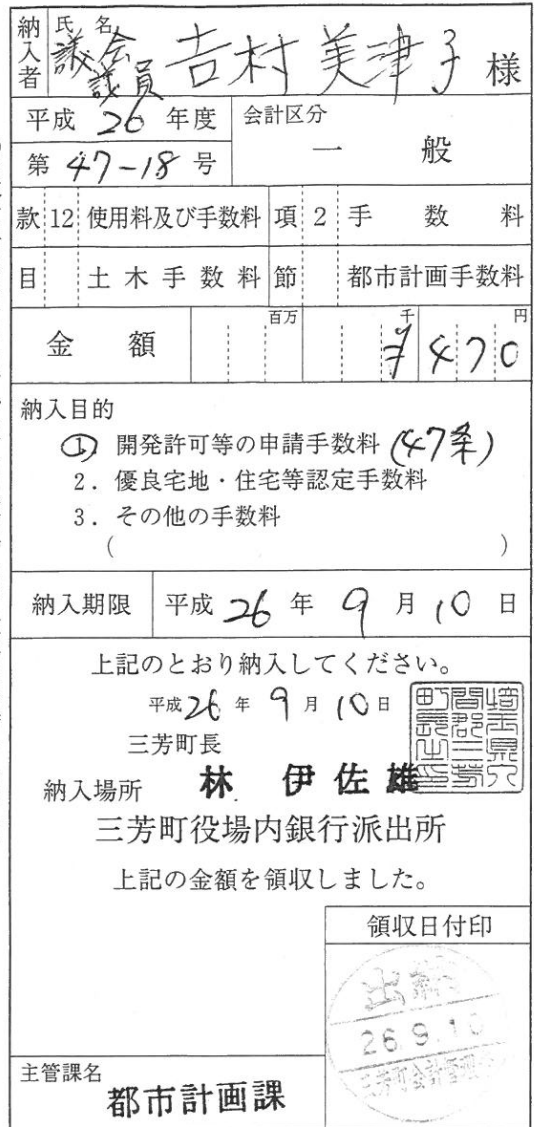 納入者
氏名
議会議員 吉村美津子 様
平成 26 年度
会計区分
第 47-18 号
一般
款 12 使用料及び手数料 項 2 手数料
目 土木手数料 節 都市計画手数料
金額 百万 千 円
¥470
納入目的
① 開発許可等の申請手数料 (47条)
2. 優良宅地・住宅等認定手数料
3. その他の手数料
( )
納入期限 平成 26 年 9 月 10 日
上記のとおり納入してください。
平成 26 年 9 月 10 日
三芳町長
納入場所 林 伊佐雄
埼玉県入間郡三芳町長之印
三芳町役場内銀行派出所
上記の金額を領収しました。
領収日付印
出納
26.9.10
三芳町会計管理
主管課名
都市計画課